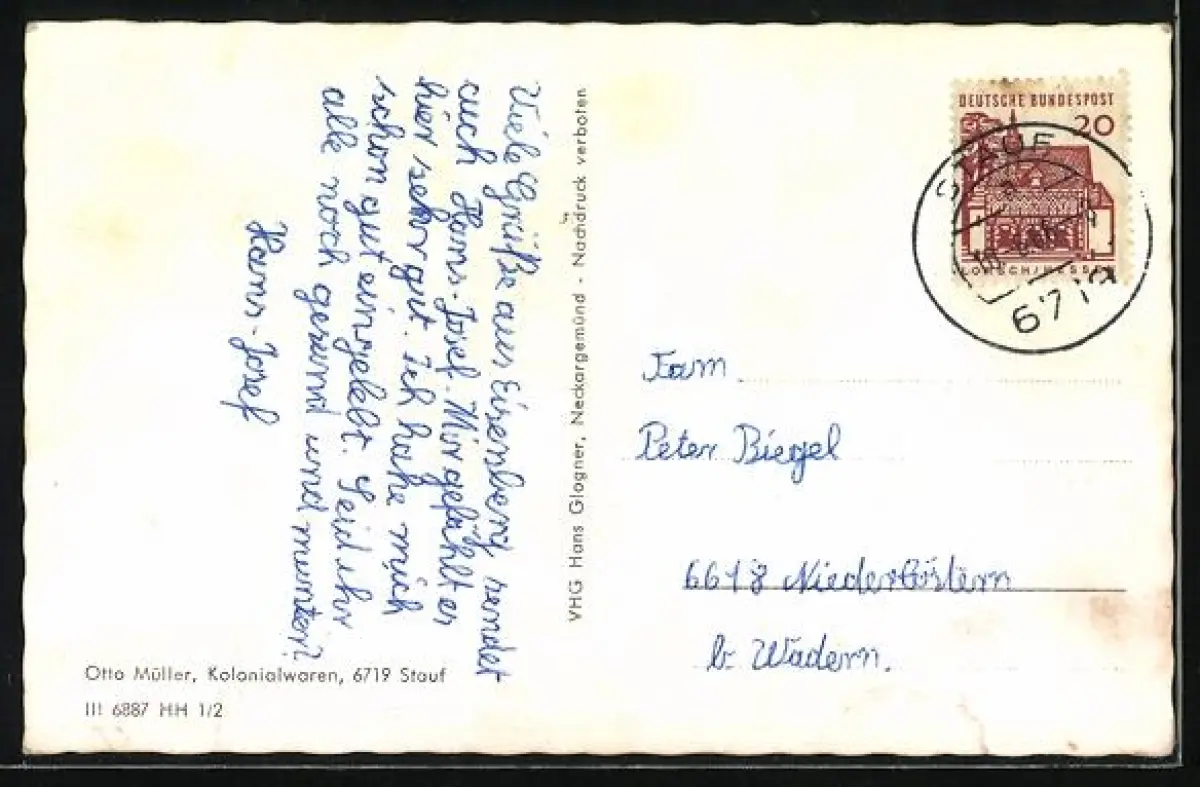 Viele Grüße aus Eisenberg sendet
euch Hans-Josef. Mir gefählt es
hier sehr gut. Ich habe mich
schon gut eingelebt. Seid ihr
alle noch gesund und munter?
Hans-Josef
VHG Hans Glogner, Neckargemünd - Nachdruck verboten
Otto Müller, Kolonialwaren, 6719 Stauf
III 6887 HH 1/2
DEUTSCHE BUNDESPOST
20
LORSCH/HESSEN
STAUF
6719
Fam
Peter Biegel
6648 Niederlöstern
b. Wadern.